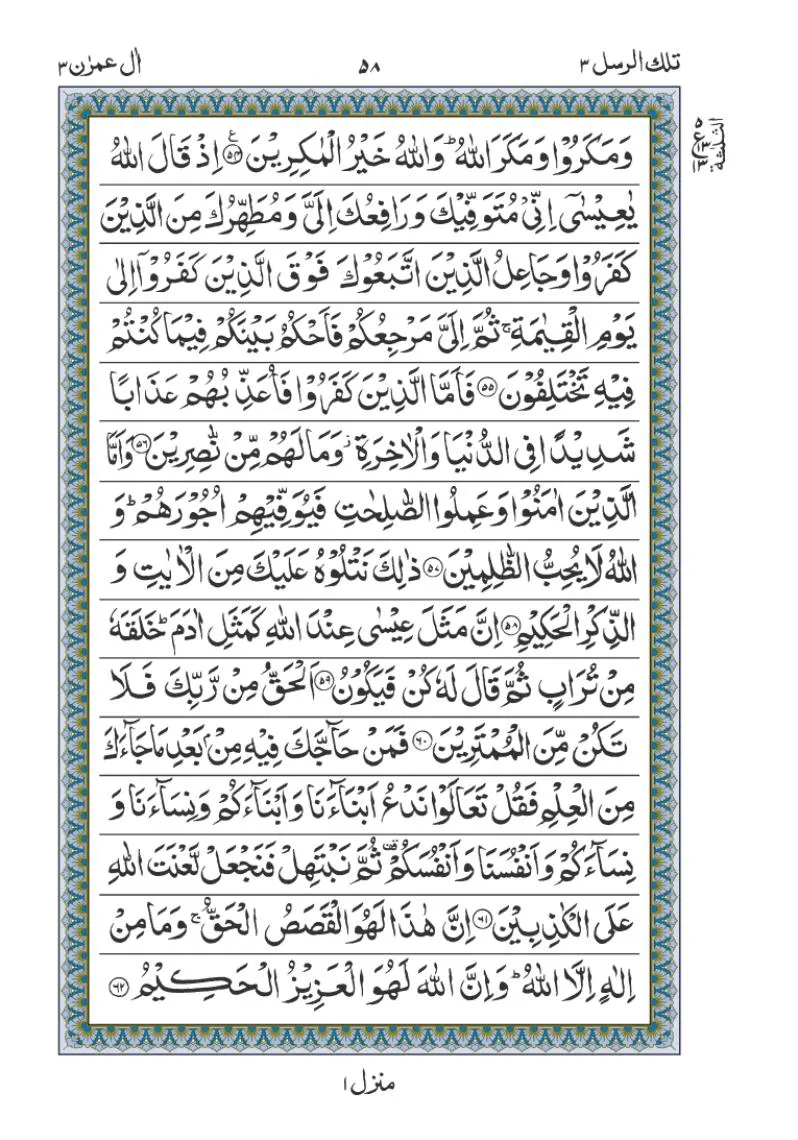 تلك الرسل ٣
٥٨
اٰل عمرٰن ٣
وَمَكَرُوْا وَمَكَرَ اللّٰهُ ؕ وَاللّٰهُ خَيْرُ الْمٰكِرِيْنَ ﴿٥٤﴾ اِذْ قَالَ اللّٰهُ
يٰعِيْسٰٓى اِنِّىْ مُتَوَفِّيْكَ وَرَافِعُكَ اِلَىَّ وَمُطَهِّرُكَ مِنَ الَّذِيْنَ
كَفَرُوْا وَجَاعِلُ الَّذِيْنَ اتَّبَعُوْكَ فَوْقَ الَّذِيْنَ كَفَرُوْۤا اِلٰى
يَوْمِ الْقِيٰمَةِ ۚ ثُمَّ اِلَىَّ مَرْجِعُكُمْ فَاَحْكُمُ بَيْنَكُمْ فِيْمَا كُنْتُمْ
فِيْهِ تَخْتَلِفُوْنَ ﴿٥٥﴾ فَاَمَّا الَّذِيْنَ كَفَرُوْا فَاُعَذِّبُهُمْ عَذَابًا
شَدِيْدًا فِى الدُّنْيَا وَالْاٰخِرَةِ ؗ وَمَا لَهُمْ مِّنْ نّٰصِرِيْنَ ﴿٥٦﴾ وَاَمَّا
الَّذِيْنَ اٰمَنُوْا وَعَمِلُوا الصّٰلِحٰتِ فَيُوَفِّيْهِمْ اُجُوْرَهُمْ ؕ وَ
اللّٰهُ لَا يُحِبُّ الظّٰلِمِيْنَ ﴿٥٧﴾ ذٰلِكَ نَتْلُوْهُ عَلَيْكَ مِنَ الْاٰيٰتِ وَ
الذِّكْرِ الْحَكِيْمِ ﴿٥٨﴾ اِنَّ مَثَلَ عِيْسٰى عِنْدَ اللّٰهِ كَمَثَلِ اٰدَمَ ؕ خَلَقَهٗ
مِنْ تُرَابٍ ثُمَّ قَالَ لَهٗ كُنْ فَيَكُوْنُ ﴿٥٩﴾ اَلْحَقُّ مِنْ رَّبِّكَ فَلَا
تَكُنْ مِّنَ الْمُمْتَرِيْنَ ﴿٦٠﴾ فَمَنْ حَآجَّكَ فِيْهِ مِنْۢ بَعْدِ مَا جَآءَكَ
مِنَ الْعِلْمِ فَقُلْ تَعَالَوْا نَدْعُ اَبْنَآءَنَا وَاَبْنَآءَكُمْ وَنِسَآءَنَا وَ
نِسَآءَكُمْ وَاَنْفُسَنَا وَاَنْفُسَكُمْ ۟ ثُمَّ نَبْتَهِلْ فَنَجْعَلْ لَّعْنَتَ اللّٰهِ
عَلَى الْكٰذِبِيْنَ ﴿٦١﴾ اِنَّ هٰذَا لَهُوَ الْقَصَصُ الْحَقُّ ۚ وَمَا مِنْ
اِلٰهٍ اِلَّا اللّٰهُ ؕ وَاِنَّ اللّٰهَ لَهُوَ الْعَزِيْزُ الْحَكِيْمُ ﴿٦٢﴾
الثلثة
منزل ١